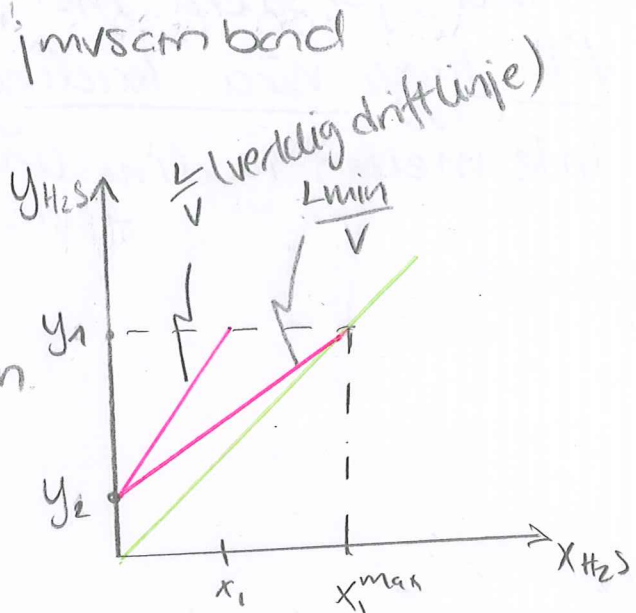 jmvscm band
L/V (verklig driftlinje)
Lmin/V
yH₂S
y₁
n
y₂
x₁
x₁max
xH₂S